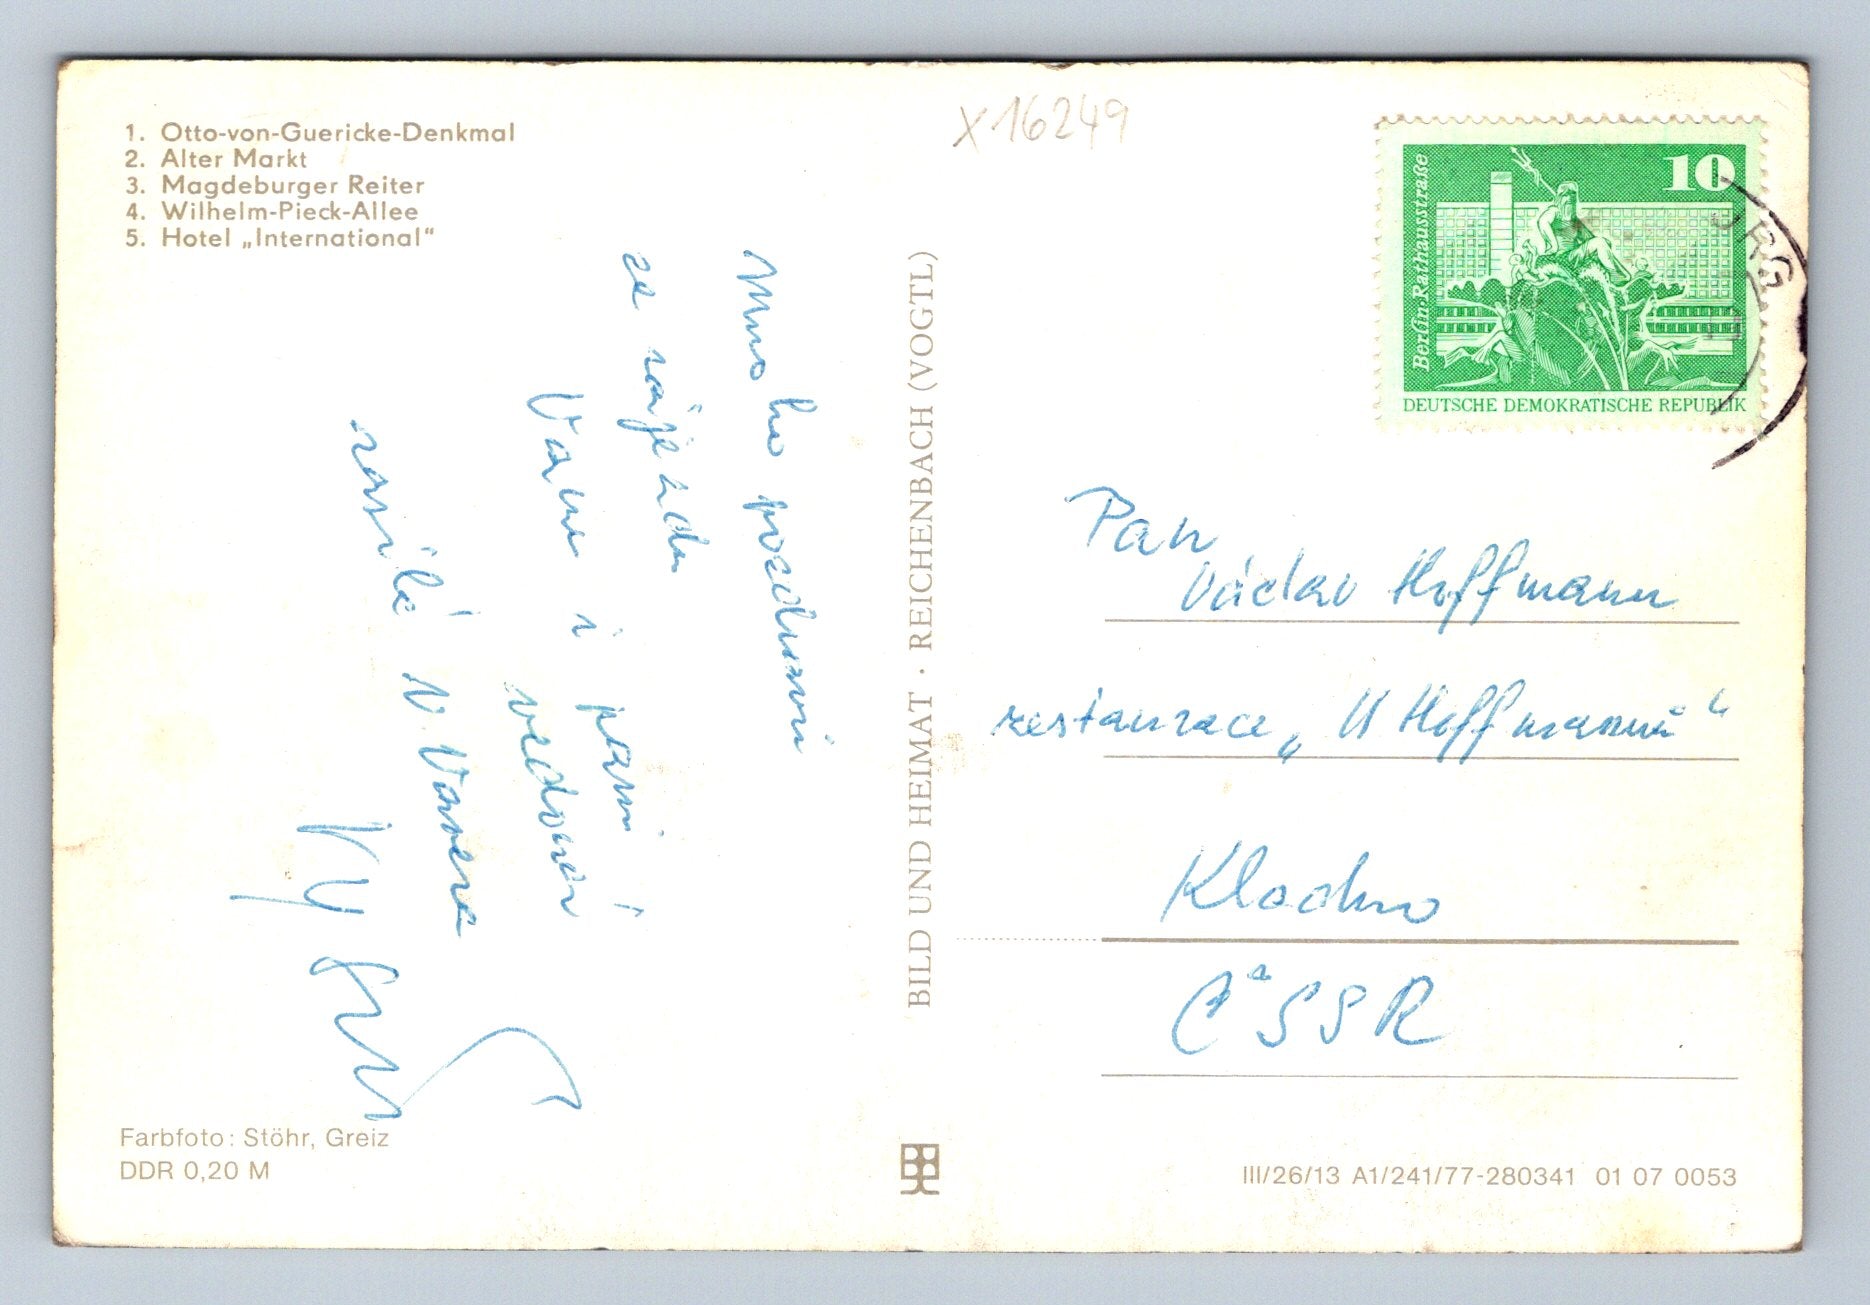 1. Otto-von-Guericke-Denkmal
2. Alter Markt
3. Magdeburger Reiter
4. Wilhelm-Pieck-Allee
5. Hotel „International“
X 16249
10
Berlin-Rathausstraße
DEUTSCHE DEMOKRATISCHE REPUBLIK
URG
Mnoho pozdravů
ze zájezdu
Vám i paní
vedoucí
zasílá V. Vaněra
BILD UND HEIMAT · REICHENBACH (VOGTL)
Pan
Václav Hoffmann
restaurace „U Hoffmannů“
Kladno
ČSSR
Farbfoto: Stöhr, Greiz
DDR 0,20 M
III/26/13 A1/241/77-280341 01 07 0053